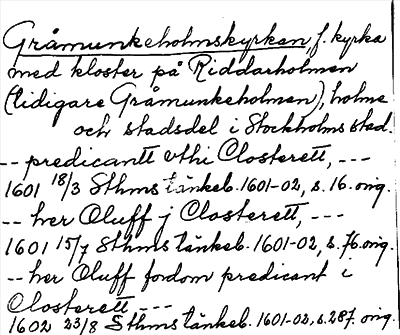 Gråmunkeholmskyrkan, f. kyrka
med kloster på Riddarholmen
(tidigare Gråmunkeholmen), holme
och stadsdel i Stockholms stad.
-- predicantt vthi Closterett, ---
1601 18/3 Sthms tänkeb. 1601-02, s. 16. orig.
-- her Oluff j Closterett, ---
1601 15/7 Sthms tänkeb. 1601-02, s. 76. orig.
-- her Oluff fordom predicant i
Closterett ---
1602 23/8 Sthms tänkeb. 1601-02, s. 287. orig.